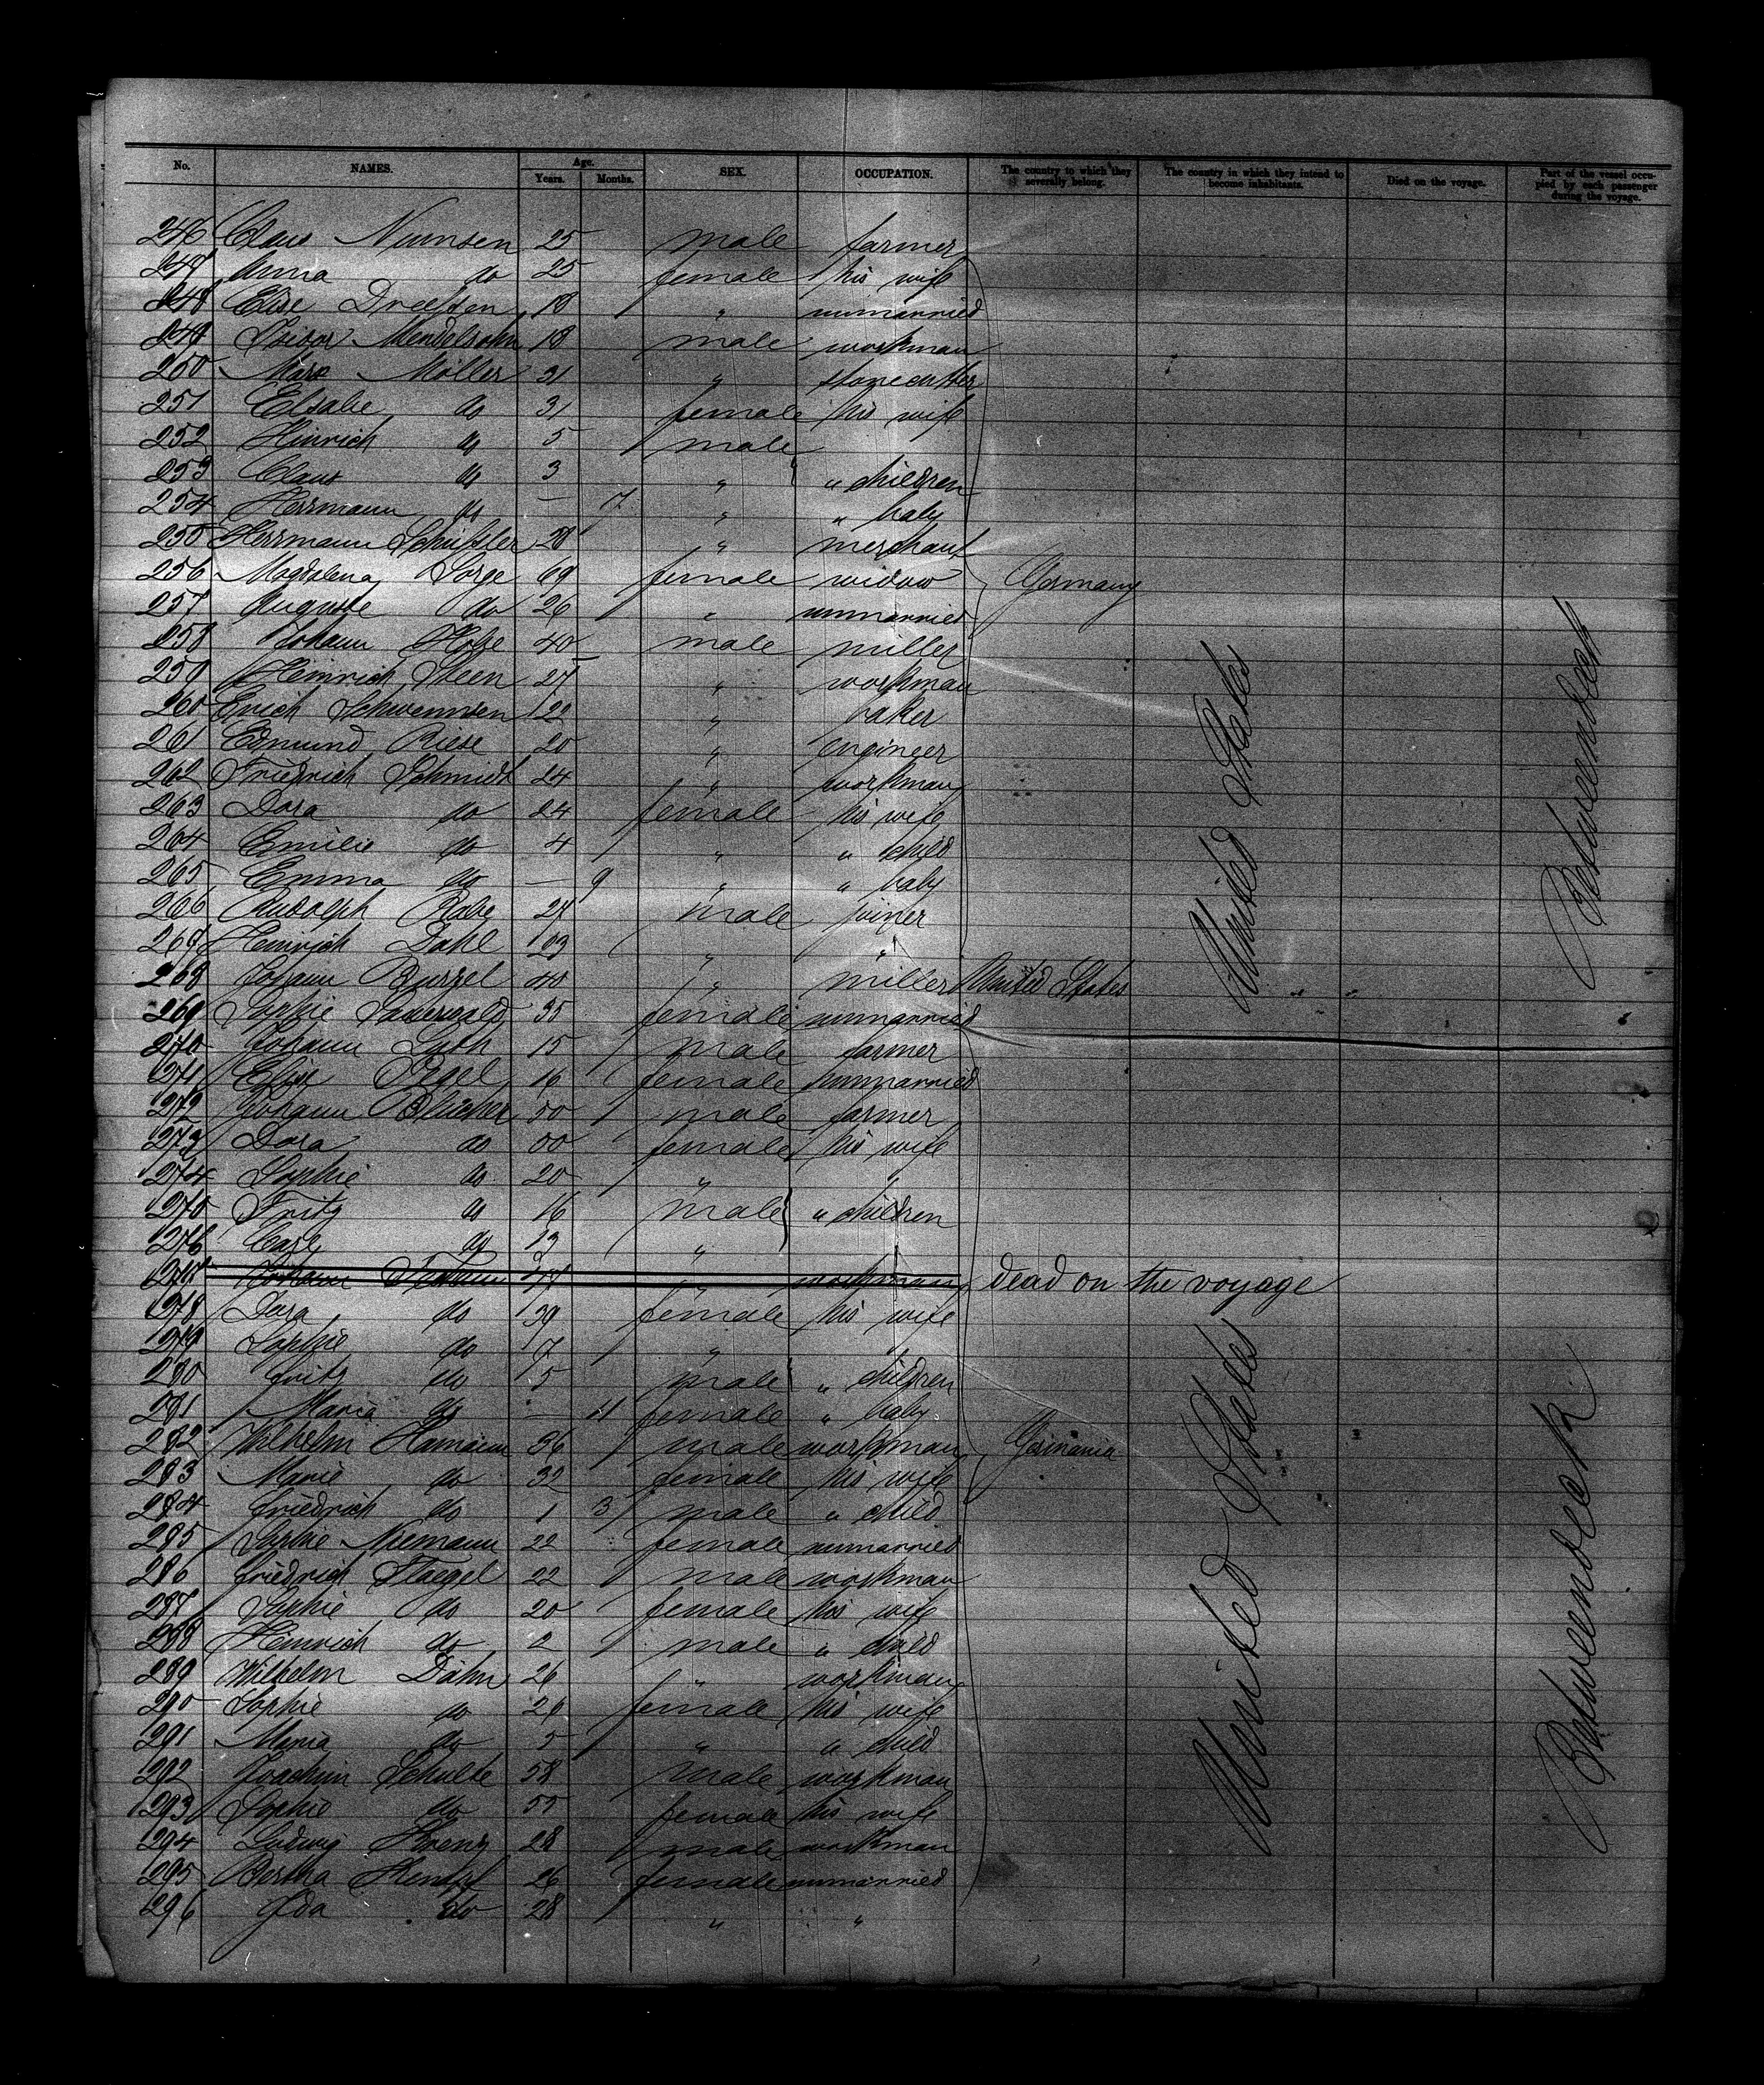 No. NAMES. Age. Years. Months. SEX. OCCUPATION. The country to which they severally belong. The country in which they intend to become inhabitants. Died on the voyage. Part of the vessel occupied by each passenger during the voyage.
246 Claus 25 male farmer
247 Anna do 25 female his wife
248 Elise 18 " unmarried
249 Isidor Mendelsohn 18 male workman
250 Marx Möller 31 " stonecutter
251 Elsabe do 31 female his wife
252 Hinrich do 5 male
253 Claus do 3 " " children
254 Herrmann do — 7 " " baby
255 Herrmann 28 " merchant
256 Magdalena Sorge 69 female widow Germany
257 Auguste do 26 " unmarried
258 Johann 40 male miller
259 Heinrich Steen 27 " workman
260 Erich Schwennsen 22 " baker
261 Edmund Riese 20 " engineer
262 Friedrich Schmidt 24 " workman
263 Dora do 24 female his wife
264 Emilie do 4 " " child
265 Emma do — 9 " " baby
266 Rudolph Rabe 27 male joiner
267 Heinrich Dahl 23 " "
268 Johann 40 " miller United States
United States
Betweendeck
269 Sophie 35 female unmarried
270 Johann 15 male farmer
271 Elise 16 female unmarried
272 Johann Blücher 50 male farmer
273 Dora do female his wife
274 Sophie do 20 " "
275 Fritz do 16 male " children
276 Carl do 13 " "
277 Johann " workman dead on the voyage
278 Dora do 39 female his wife
279 Sophie do 7 " "
280 Fritz do 5 male " children
281 Maria do — 11 female " baby
282 Wilhelm Hamann 36 male workman Germania
283 Marie do 32 female his wife
284 Friedrich do 1 3 male " child
285 Sophie Niemann 22 female unmarried
286 Friedrich 22 male workman
287 Sophie do 20 female his wife
288 Heinrich do 2 male " child
289 Wilhelm Dähn 26 " workman
290 Sophie do female his wife
291 Maria do 5 " " child
292 Joachim Schulte 58 male workman
293 Sophie do 55 female his wife
294 Ludwig 28 male workman
295 Bertha 26 female unmarried
296 Ida do 28 " "
United States
Betweendeck